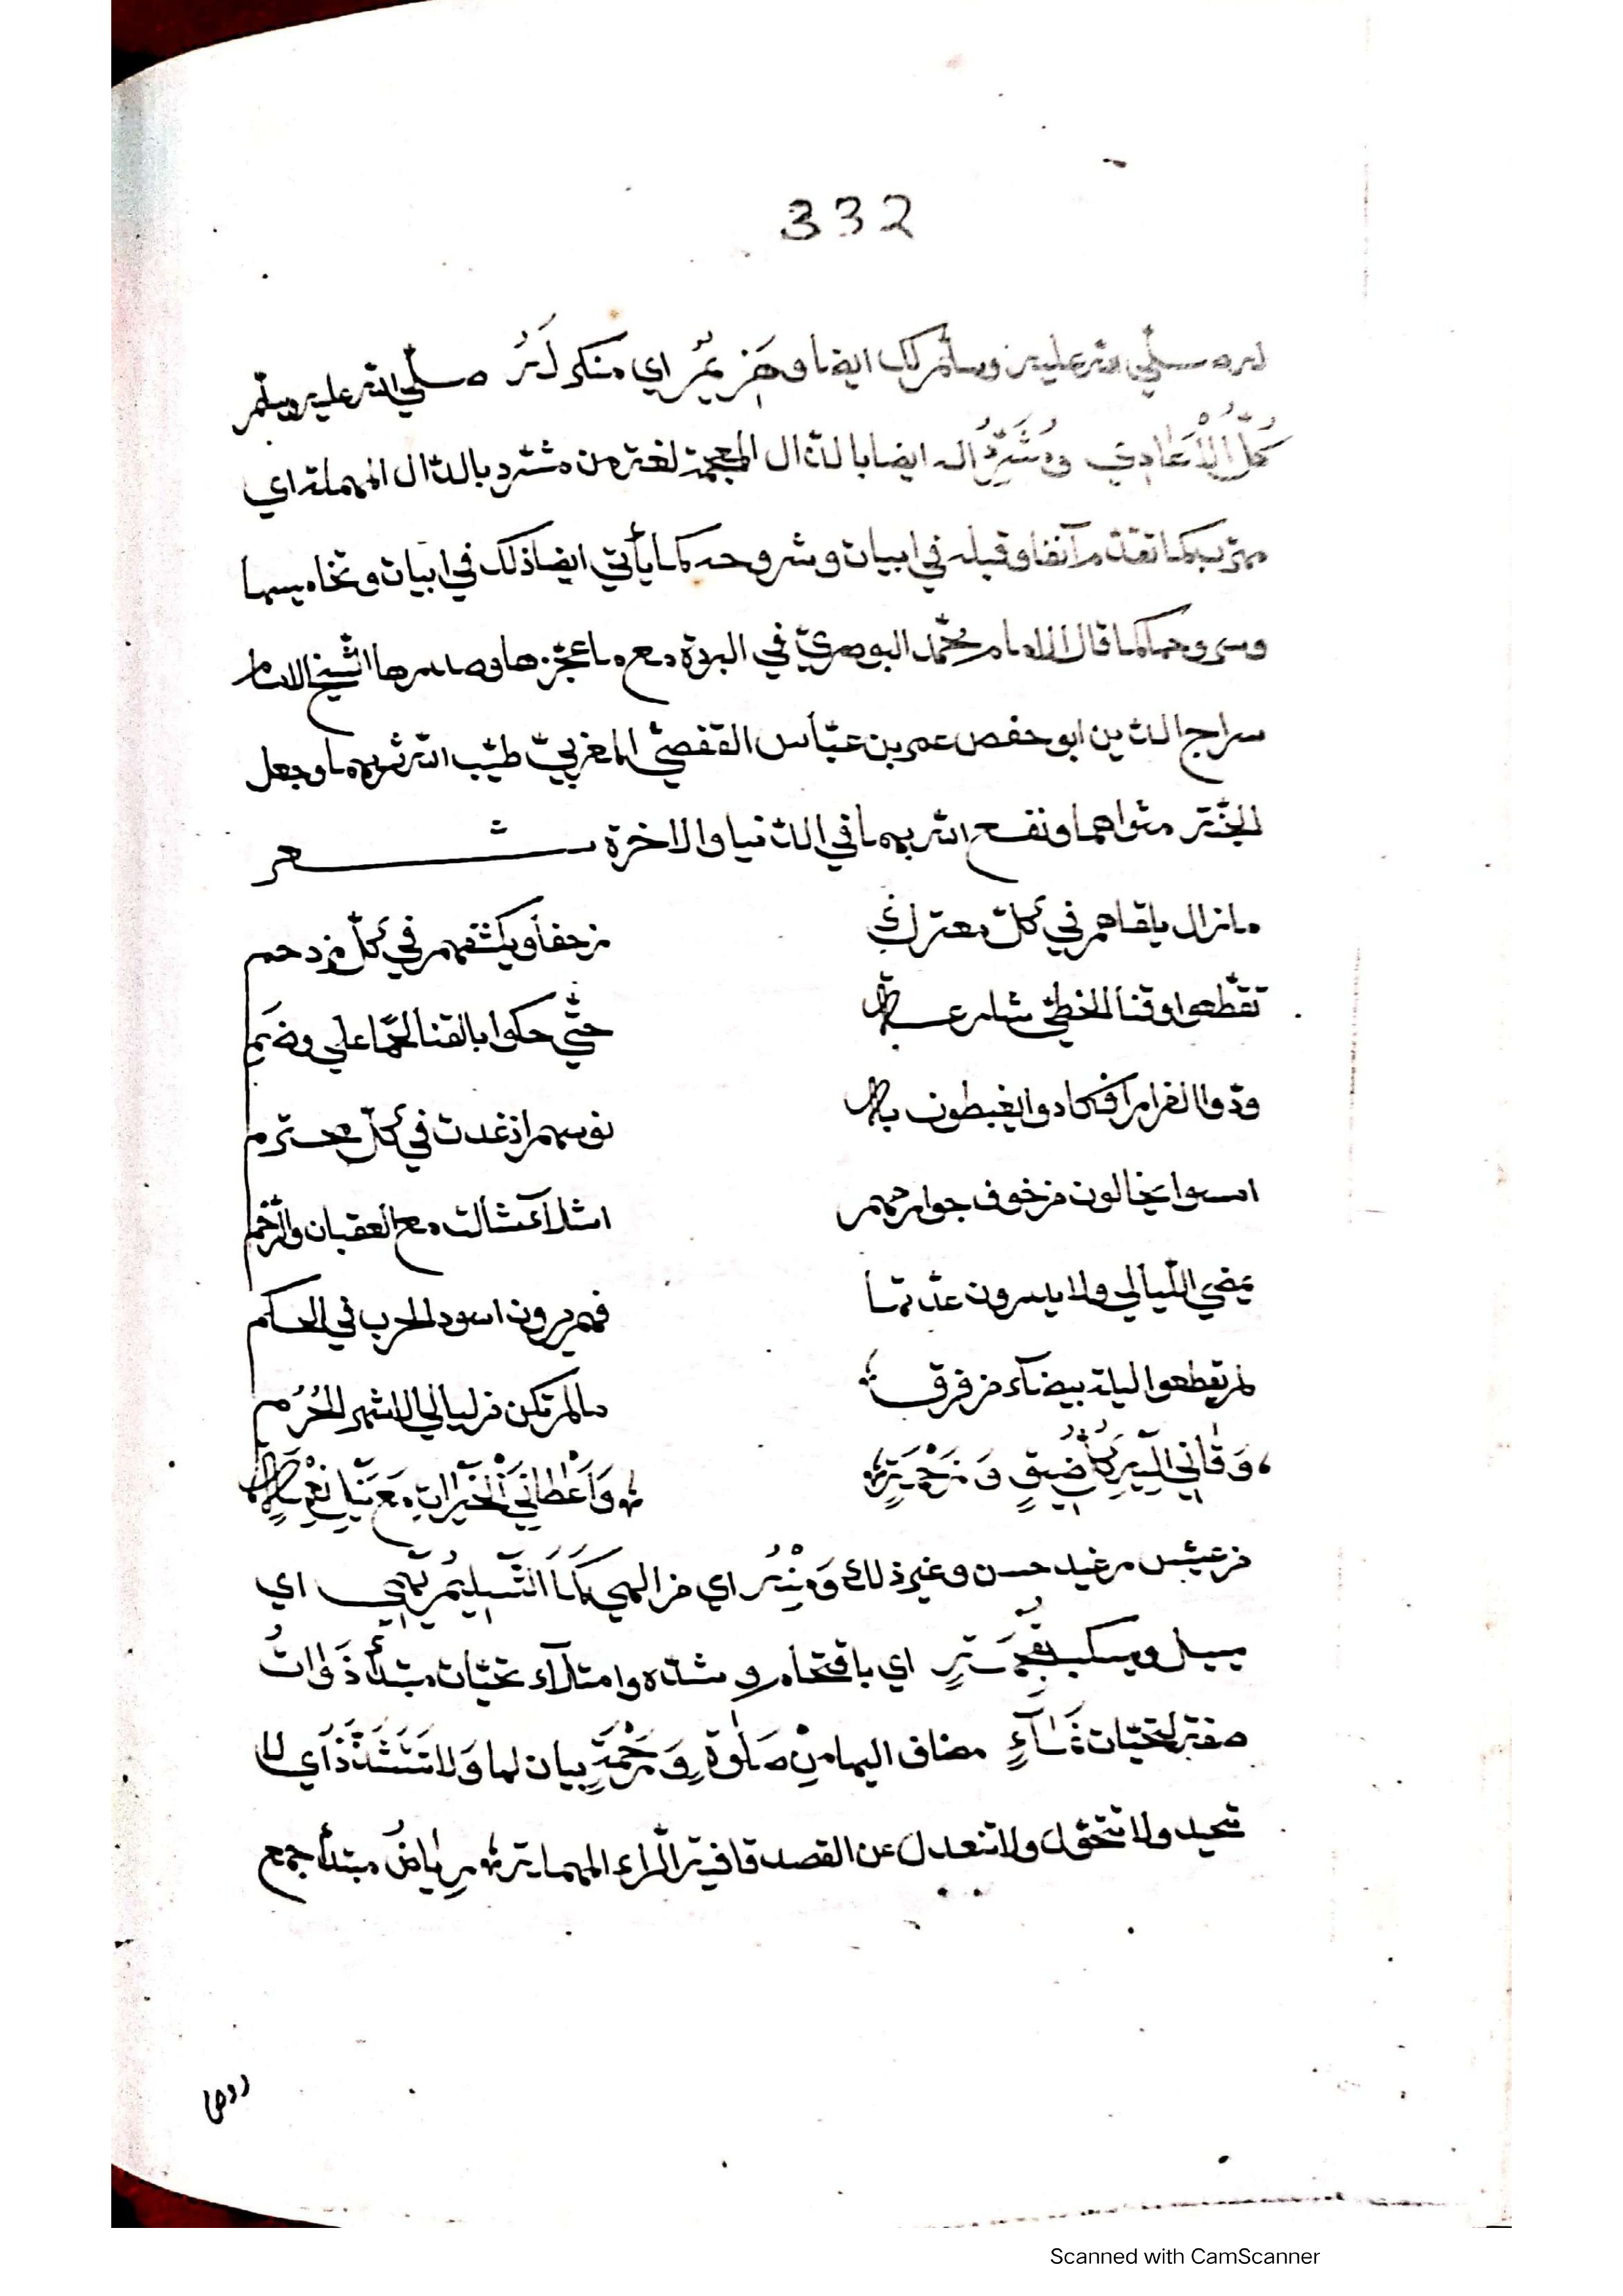 332
صلّي الله عليه وسلّم لك ايضا وهَزِيمٌ اي منكر لَهُ صلّي الله عليه وسلّم
كُلُّ الْأَعَادِي وَمُشَرِّذُ له ايضا بالذال المعجمة لغة من مشرد بالدال المهملة اي
مهرب كما تقدم آنفا وقبله في ابيات وشروحه كما يأتي ايضا ذلك في ابيات وتخاميسها
وشروحها كما قال الامام محمّد البوصريّ في البردة مع ما عجّزها وصدرها الشيخ الامام
سراج الدين ابو حفص عمر بن عبّاس القفصيّ المغربيّ طيّب الله ثربهما وجعل
الجنّة مثواهما ونفع الله بهما في الدنيا والاخرة شعر
مازال يلقاهم في كلّ معترك زحفا ويكشفهم في كلّ مزدحم
تقطّعوا وقنا الخطّيّ شارعة حتّي حكوا بالقنا لحما علي وضم
ودّوا الفرار فكادوا يغبطون به نفوسهم اذ غدت في كلّ محترم
امسوا يخالون من خوف جوارحهم اشلآء شالت مع العقبان والرّخم
تمضي اللّيالي ولا يدرون عدّتها فهم يرون اسود الحرب في الحكم
لم يقطعوا ليلة بيضآء من فرق مالم تكن من ليالي الاشهر الحُرُم
وَقَانِي الَهِي كُلَّ ضِيقٍ وَزَحْمَةٍ وَاَعْطَانِيَ الْخَيْرَاتِ مَعَ نِعْمَةٍ
من عيش رغيد حسن وغير ذلك وَمِنْهُ اي من الهي كَمَا التَّسْلِيمُ يَهْمِي اي
يسيل ويسكب بِقُحْمَةٍ اي باقتحام وشدّه وامتلآء تحيّات مبتدأ ذَوَاتُ
صفة لتحيّات مضاف اليها مِنْ صَلٰوةٍ وَرَحْمَةٍ بيان لها وَلَا تَتَشَذَّذَ اي لا
تحيد ولا تتحوّل ولا تنعدل عن القصد قافية الرّاء المهملة رِيَاضُ مبتدأ جمع
روض
Scanned with CamScanner